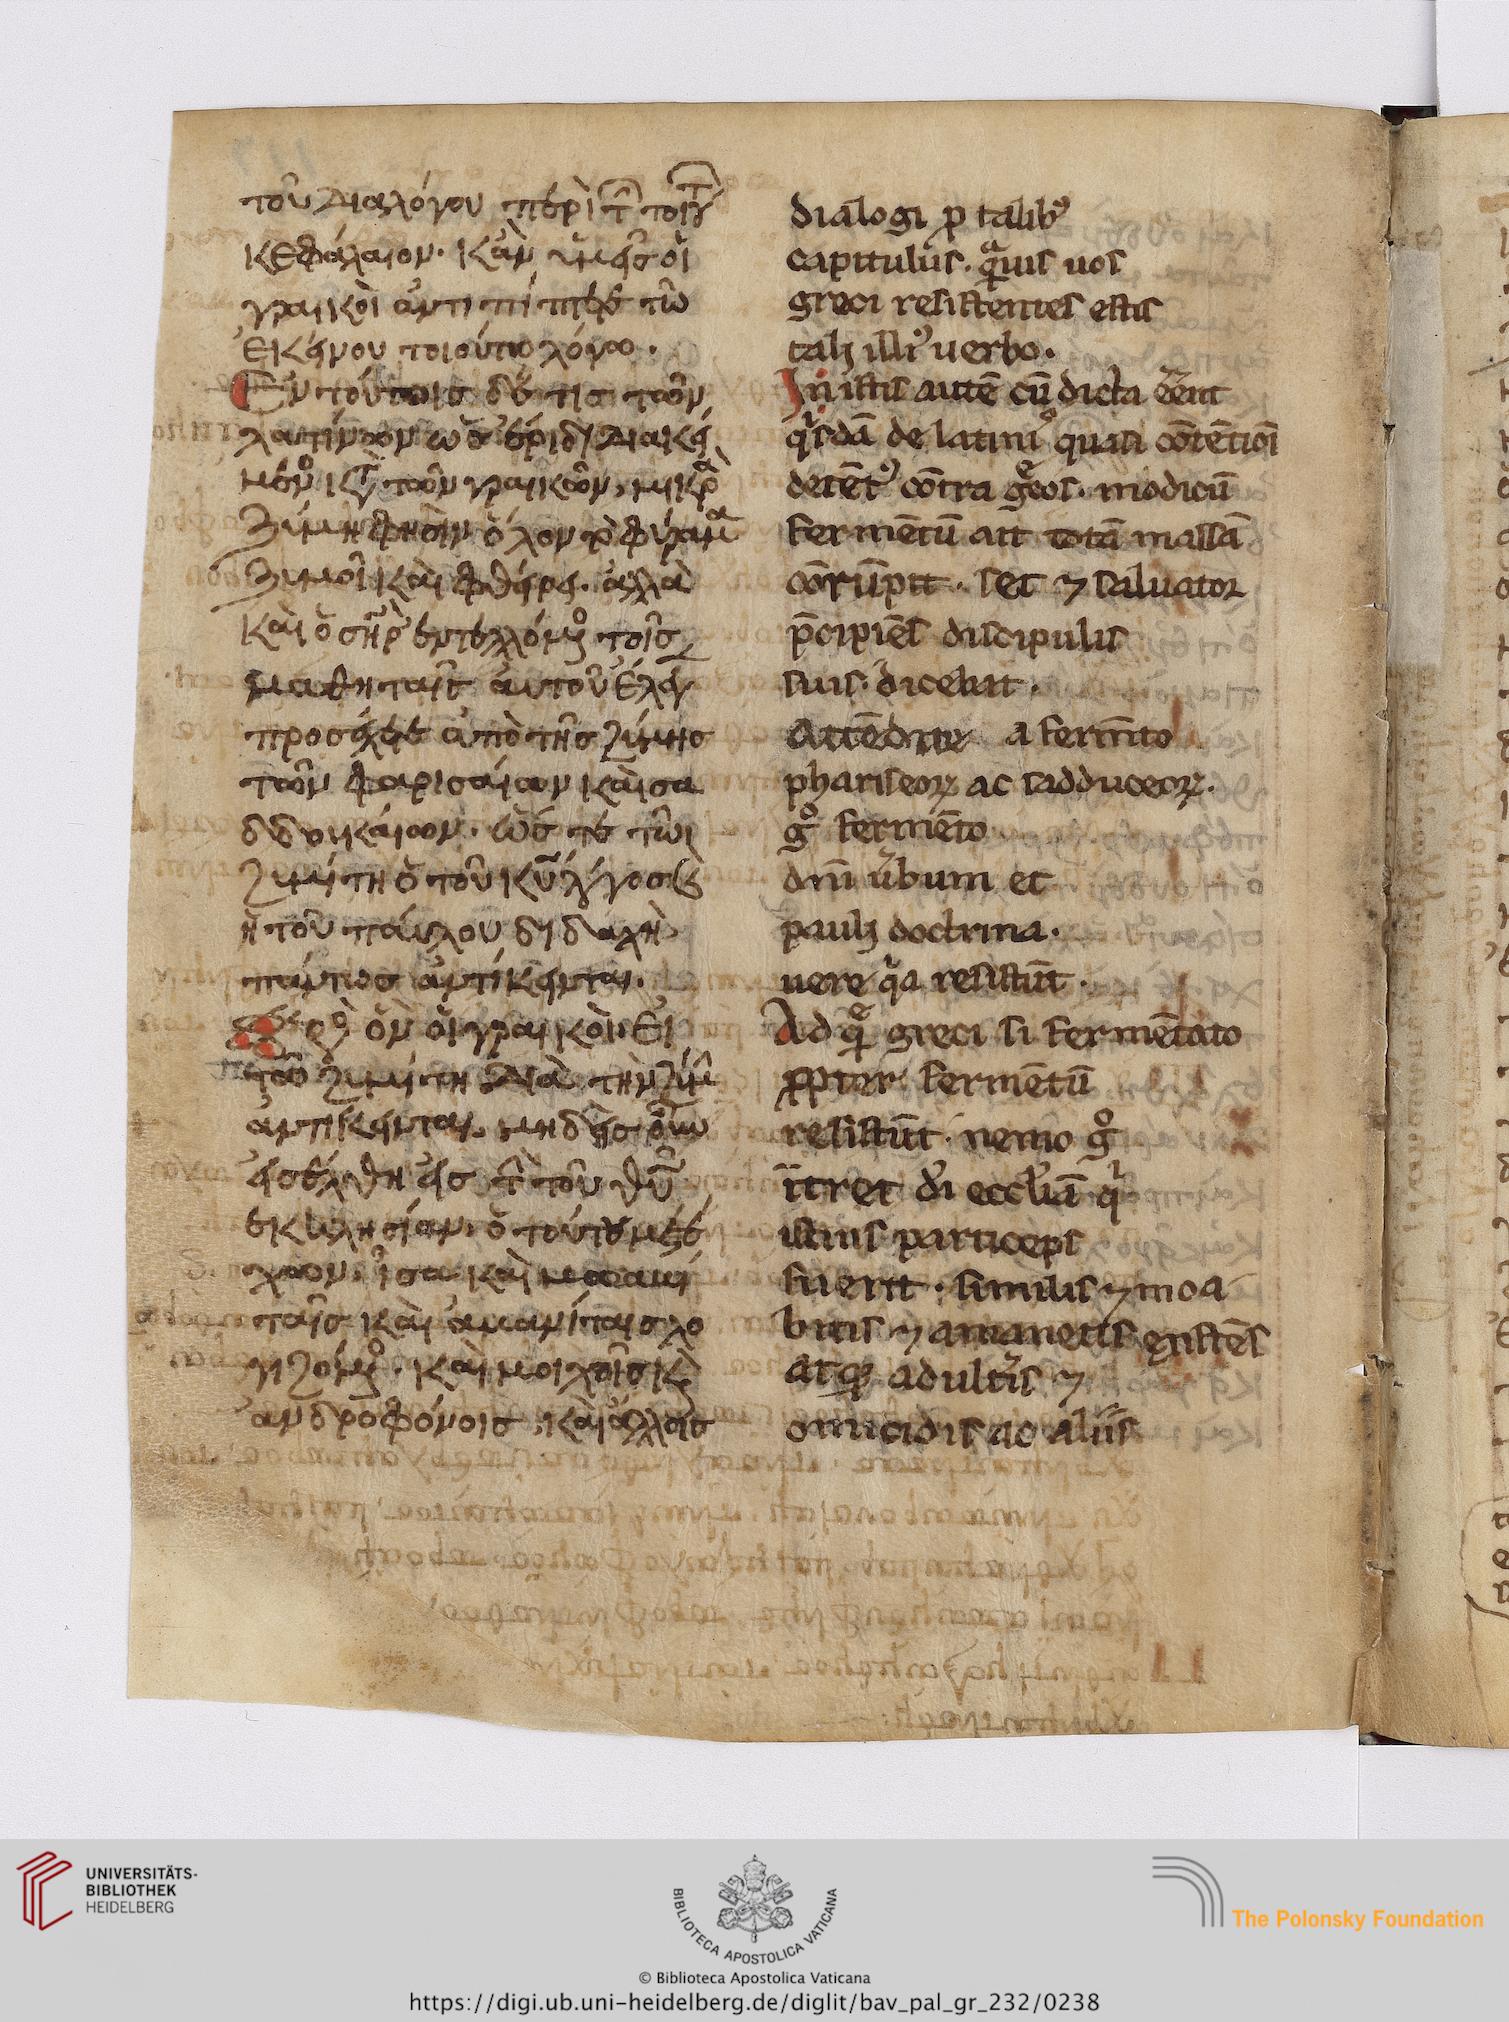 τοῦ διαλόγου περὶ τ τοι
κεφάλαιον. κἂν ὑμεῖς οἱ
γραικοὶ ἀντιπίπτετε τῶ
ἐκείνου τοιούτω λόγω.
Ἐν τούτοις δέ τις τῶν
λατίνων ὡς ἔριδι διακεί
μεν κ τῶν γραικῶν, μικρ
ζύμη φησὶν ὅλον τὸ φύραμ
ζυμοῖ καὶ φθείρει. ἀλλὰ
καὶ ὁ σηρ ἐντελλόμ τοῖς
μαθηταῖς αὐτοῦ ἔλεγ
προσέχετε ἀπὸ τῆς ζύμης
τῶν φαρισαίων καὶ σα
δδουκαίων. ὥστε τῶι
ζυμίτη ὁ τοῦ κυ λόγος καὶ
ἡ τοῦ παύλου διδαχὴ
πάντως ἀντίκειται.
ὃν οἱ γραικοὶ εἰ
τῶ ζυμίτη διὰ τὴν ζύμ
ἀντίκεινται. μηδεὶς οὖν
εἰσέλθη εἰς τ τοῦ θυ
ἐκκλησίαν ὁ τούτου μετέ
χων. ἴσα καὶ μωαβί
ταις καὶ ἀμανίταις λο
γιζόμ. καὶ μοιχοῖς κ
ἀνδροφόνοις, καὶ ἄλλοις
dialogi p talib9
capitulus. quis uos
greci resistentes estis
tali illi9 uerbo.
In istis autē cū dicta eēnt
qisdā de latini quasi cōtētiōi
detēt9 cōtra gcos. modicū
fermētū ait totā massā
cōrūpit. set ⁊ saluator
p̄cipiēs discipulis
suis. dicebat.
Attēdite a fermto
phariseoꝝ ac sadduceoꝝ.
go fermēto
dnī ubum et
pauli doctrina.
uere qa resistūt.
Ad q greci si fermētato
ppter fermētū
resistūt. nemo go
ītret di eccliā q
istius particeps
fuerit. similis ⁊ moa
bitis ⁊ amanetis existēs
atqꝫ adultis ⁊
omicidis ac aliis
UNIVERSITÄTS-
BIBLIOTHEK
HEIDELBERG
BIBLIOTECA APOSTOLICA VATICANA
The Polonsky Foundation
© Biblioteca Apostolica Vaticana
https://digi.ub.uni-heidelberg.de/diglit/bav_pal_gr_232/0238